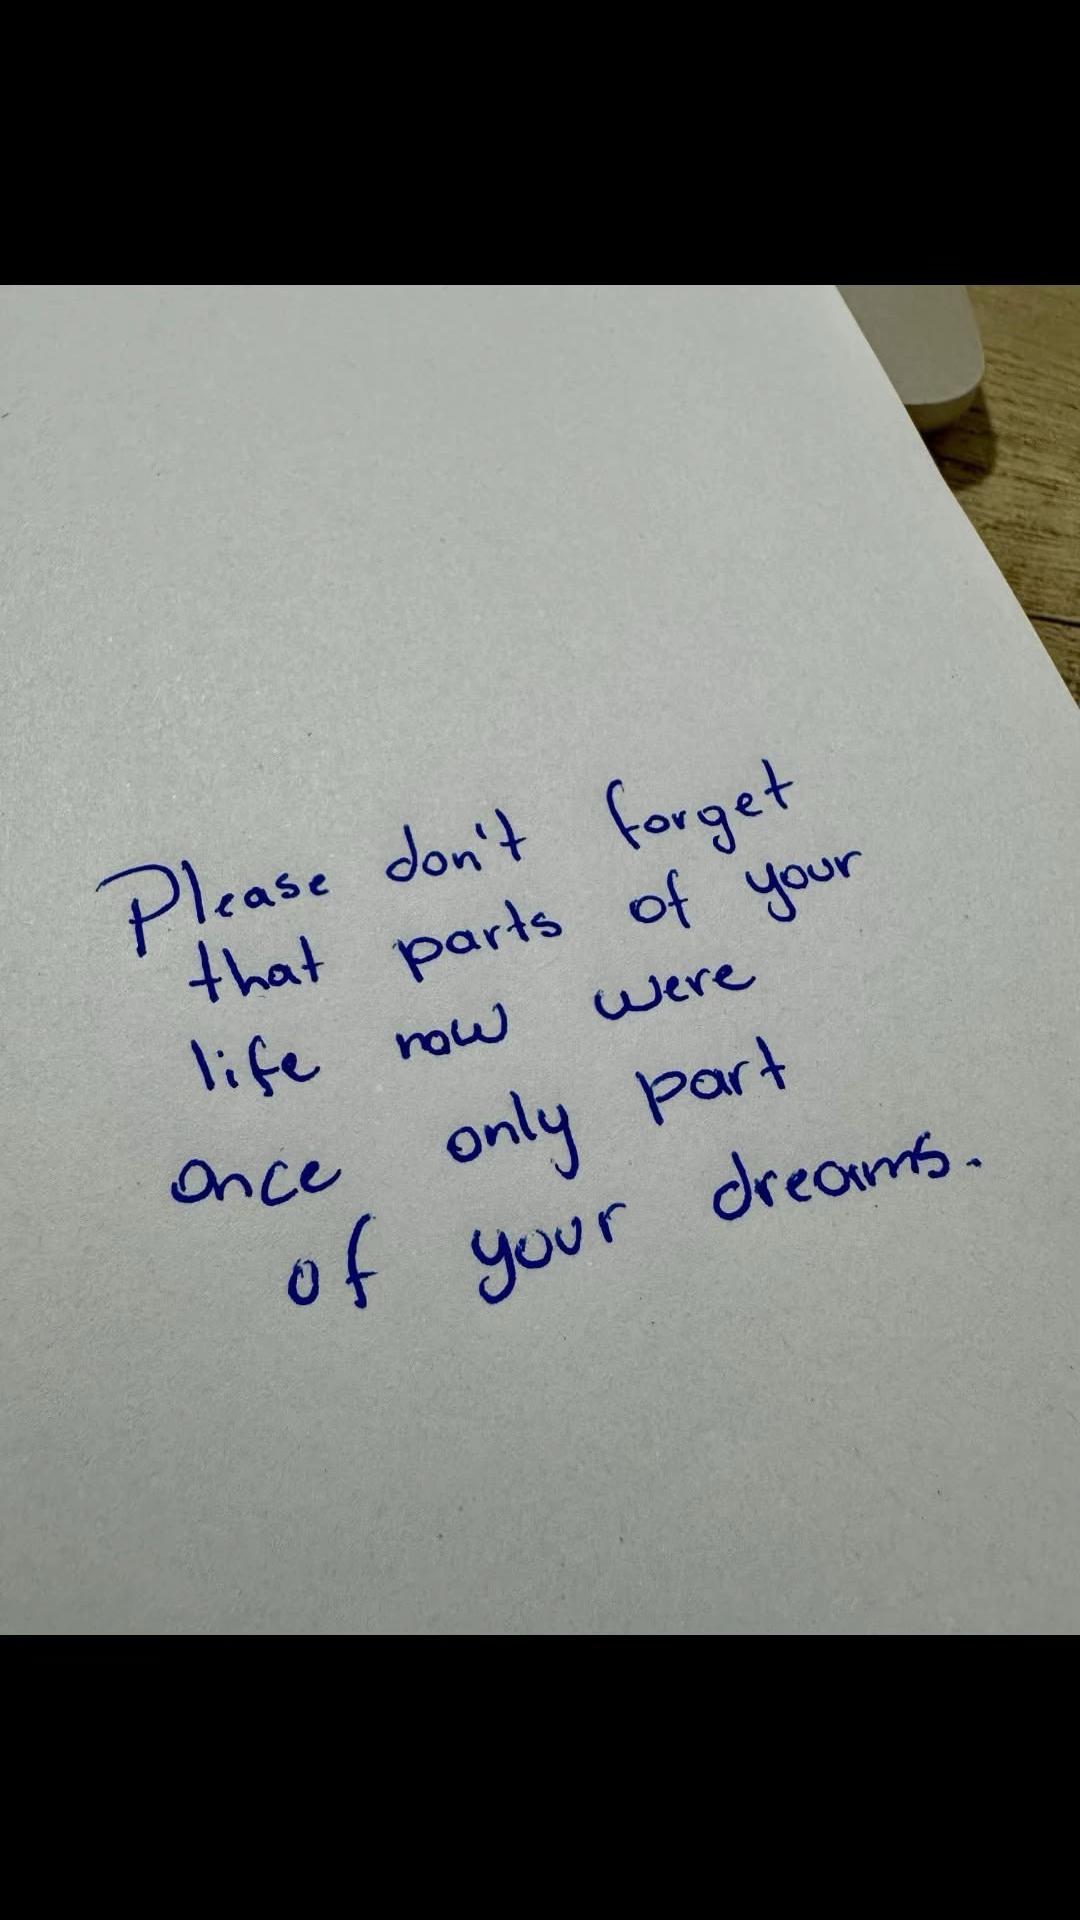 Please don't forget
that parts of your
life now were
once only part
of your dreams.